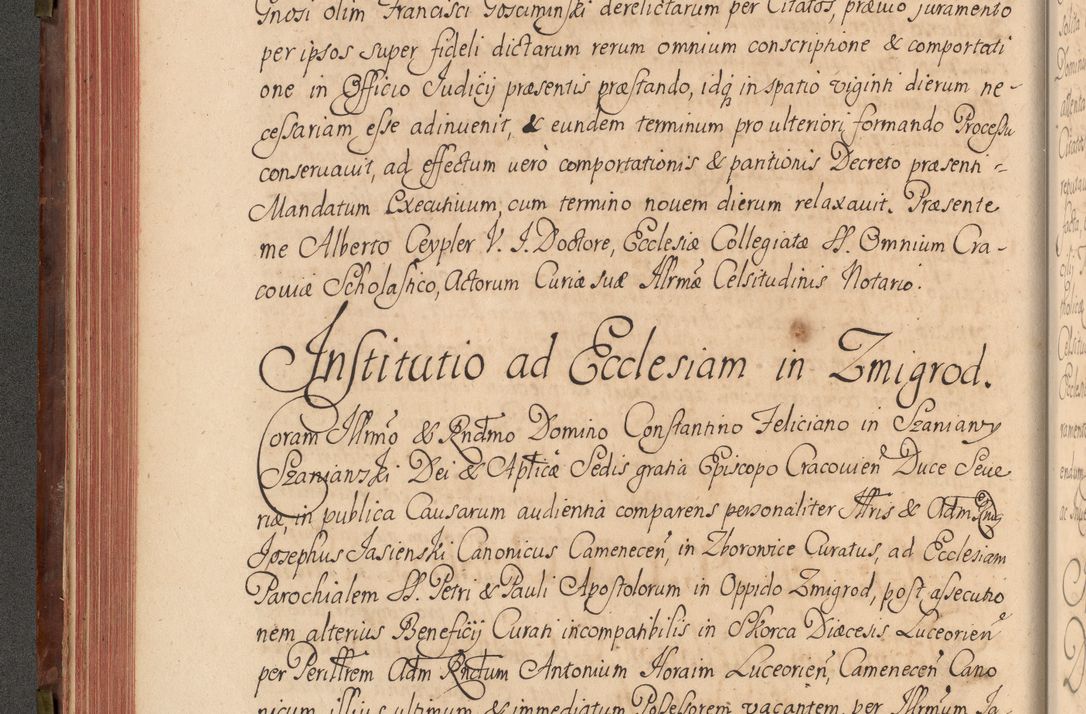 Gnosi olim Francisci Gosciminski derelictarum per Citatos, prævio juramento
per ipsos super fideli dictarum rerum omnium conscriptione & comportati
one in Officio Judicij præsentis præstando, idq in spatio viginti dierum ne-
cessariam esse adinvenit, & eundem terminum pro ulteriori formando Processu
conservavit, ad effectum verò comportationis & pantionis Decreto præsenti=
Mandatum Executivum, cum termino novem dierum relaxavit. Præsente
me Alberto Ceypler V. J. Doctore, Ecclesiæ Collegiatæ SS. Omnium Cra-
coviæ Scholastico, Actorum Curiæ suæ Illrmæ Celsitudinis Notario.
Institutio ad Ecclesiam in Zmigrod.
Coram Illrmo & Rndmo Domino Constantino Feliciano in Szaniawy
Szaniawski Dei & Aplicæ Sedis gratia Episcopo Cracovien Duce Seve
riæ, in publica Causarum audientia comparens personaliter Illris & Adm Rndus
Josephus Jasienski Canonicus Camenecen, in Zborowice Curatus, ad Ecclesiam
Parochialem SS. Petri & Pauli Apostolorum in Oppido Zmigrod, post assecutio
nem alterius Beneficij Curati incompatibilis in Skorca Diæcesis Luceorien
per Perillrem Adm Rndum Antonium Horaim Luceorien, Camenecen Cano
nicum illius ultimum & immediatum Possessorem vacantem, per Illrmum Ja-